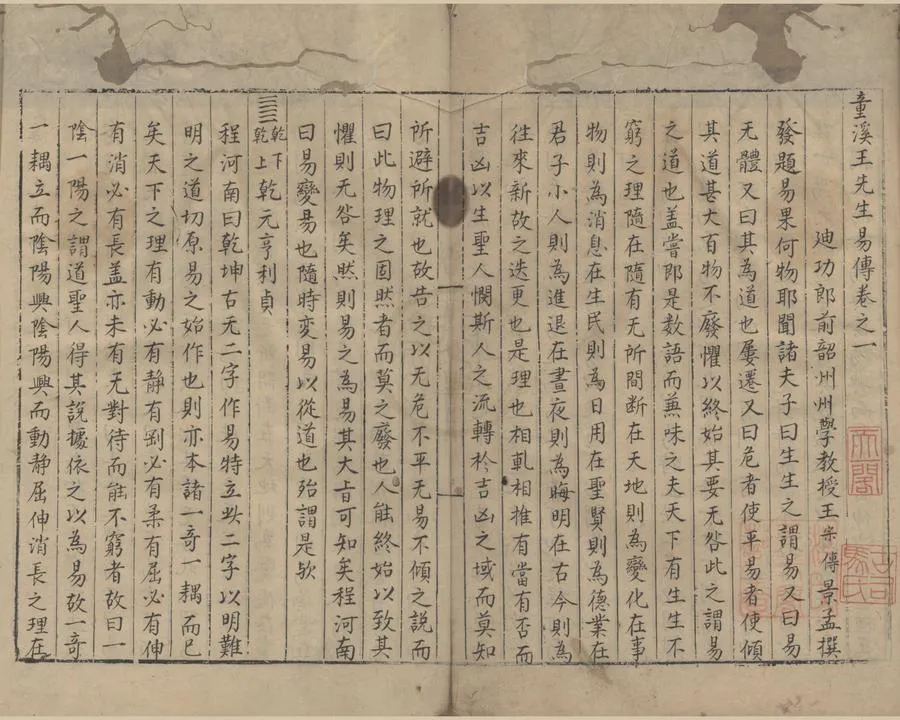 童溪王先生易傳卷之一
廸功郎前韶州州學教授王宗傳景孟撰
發題易果何物耶聞諸夫子曰生生之謂易又曰易
无體又曰其為道也屢遷又曰危者使平易者使傾
其道甚大百物不廢懼以終始其要无咎此之謂易
之道也盖嘗即是数語而兼味之夫天下有生生不
窮之理隨在隨有无所間断在天地則為變化在事
物則為消息在生民則為日用在聖賢則為德業在
君子小人則為進退在晝夜則為晦明在古今則為
徃來新故之迭更也是理也相軋相推有當有否而
吉凶以生聖人憫斯人之流轉於吉凶之域而莫知
所避所就也故告之以无危不平无易不傾之說而
曰此物理之固然者而莫之廢也人能終始以致其
懼則无咎矣然則易之為易其大㫖可知矣程河南
曰易變易也隨時変易以從道也殆謂是欤
䷀乾下乾上乾元亨利貞
程河南曰乾坤古无二字作易特立此二字以明難
明之道切原易之始作也則亦本諸一奇一耦而已
矣天下之理有動必有静有剛必有柔有屈必有伸
有消必有長盖亦未有无對待而能不窮者故曰一
陰一陽之謂道聖人得其說據依之以為易故一奇
一耦立而陰陽興陰陽興而動静屈伸消長之理在